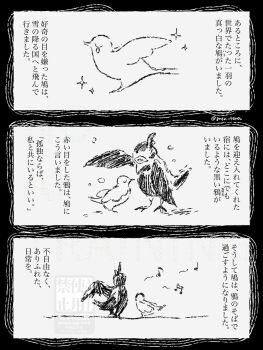 あるところに、
世界でたった一羽の
真っ白な鳩がいました。
好奇の目を嫌った鳩は、
雪の降る国へと飛んで
行きました。
鳩を迎え入れてくれた
宿には、どこにでも
いるような黒い鴉が
いました。
赤い目をした鴉は、鳩に
こう言いました。
「孤独ならば、
私と共にいるといい。」
そうして鳩は、鴉のそばで
過ごすようになりました。
不自由なく、
ありふれた、
日常を。